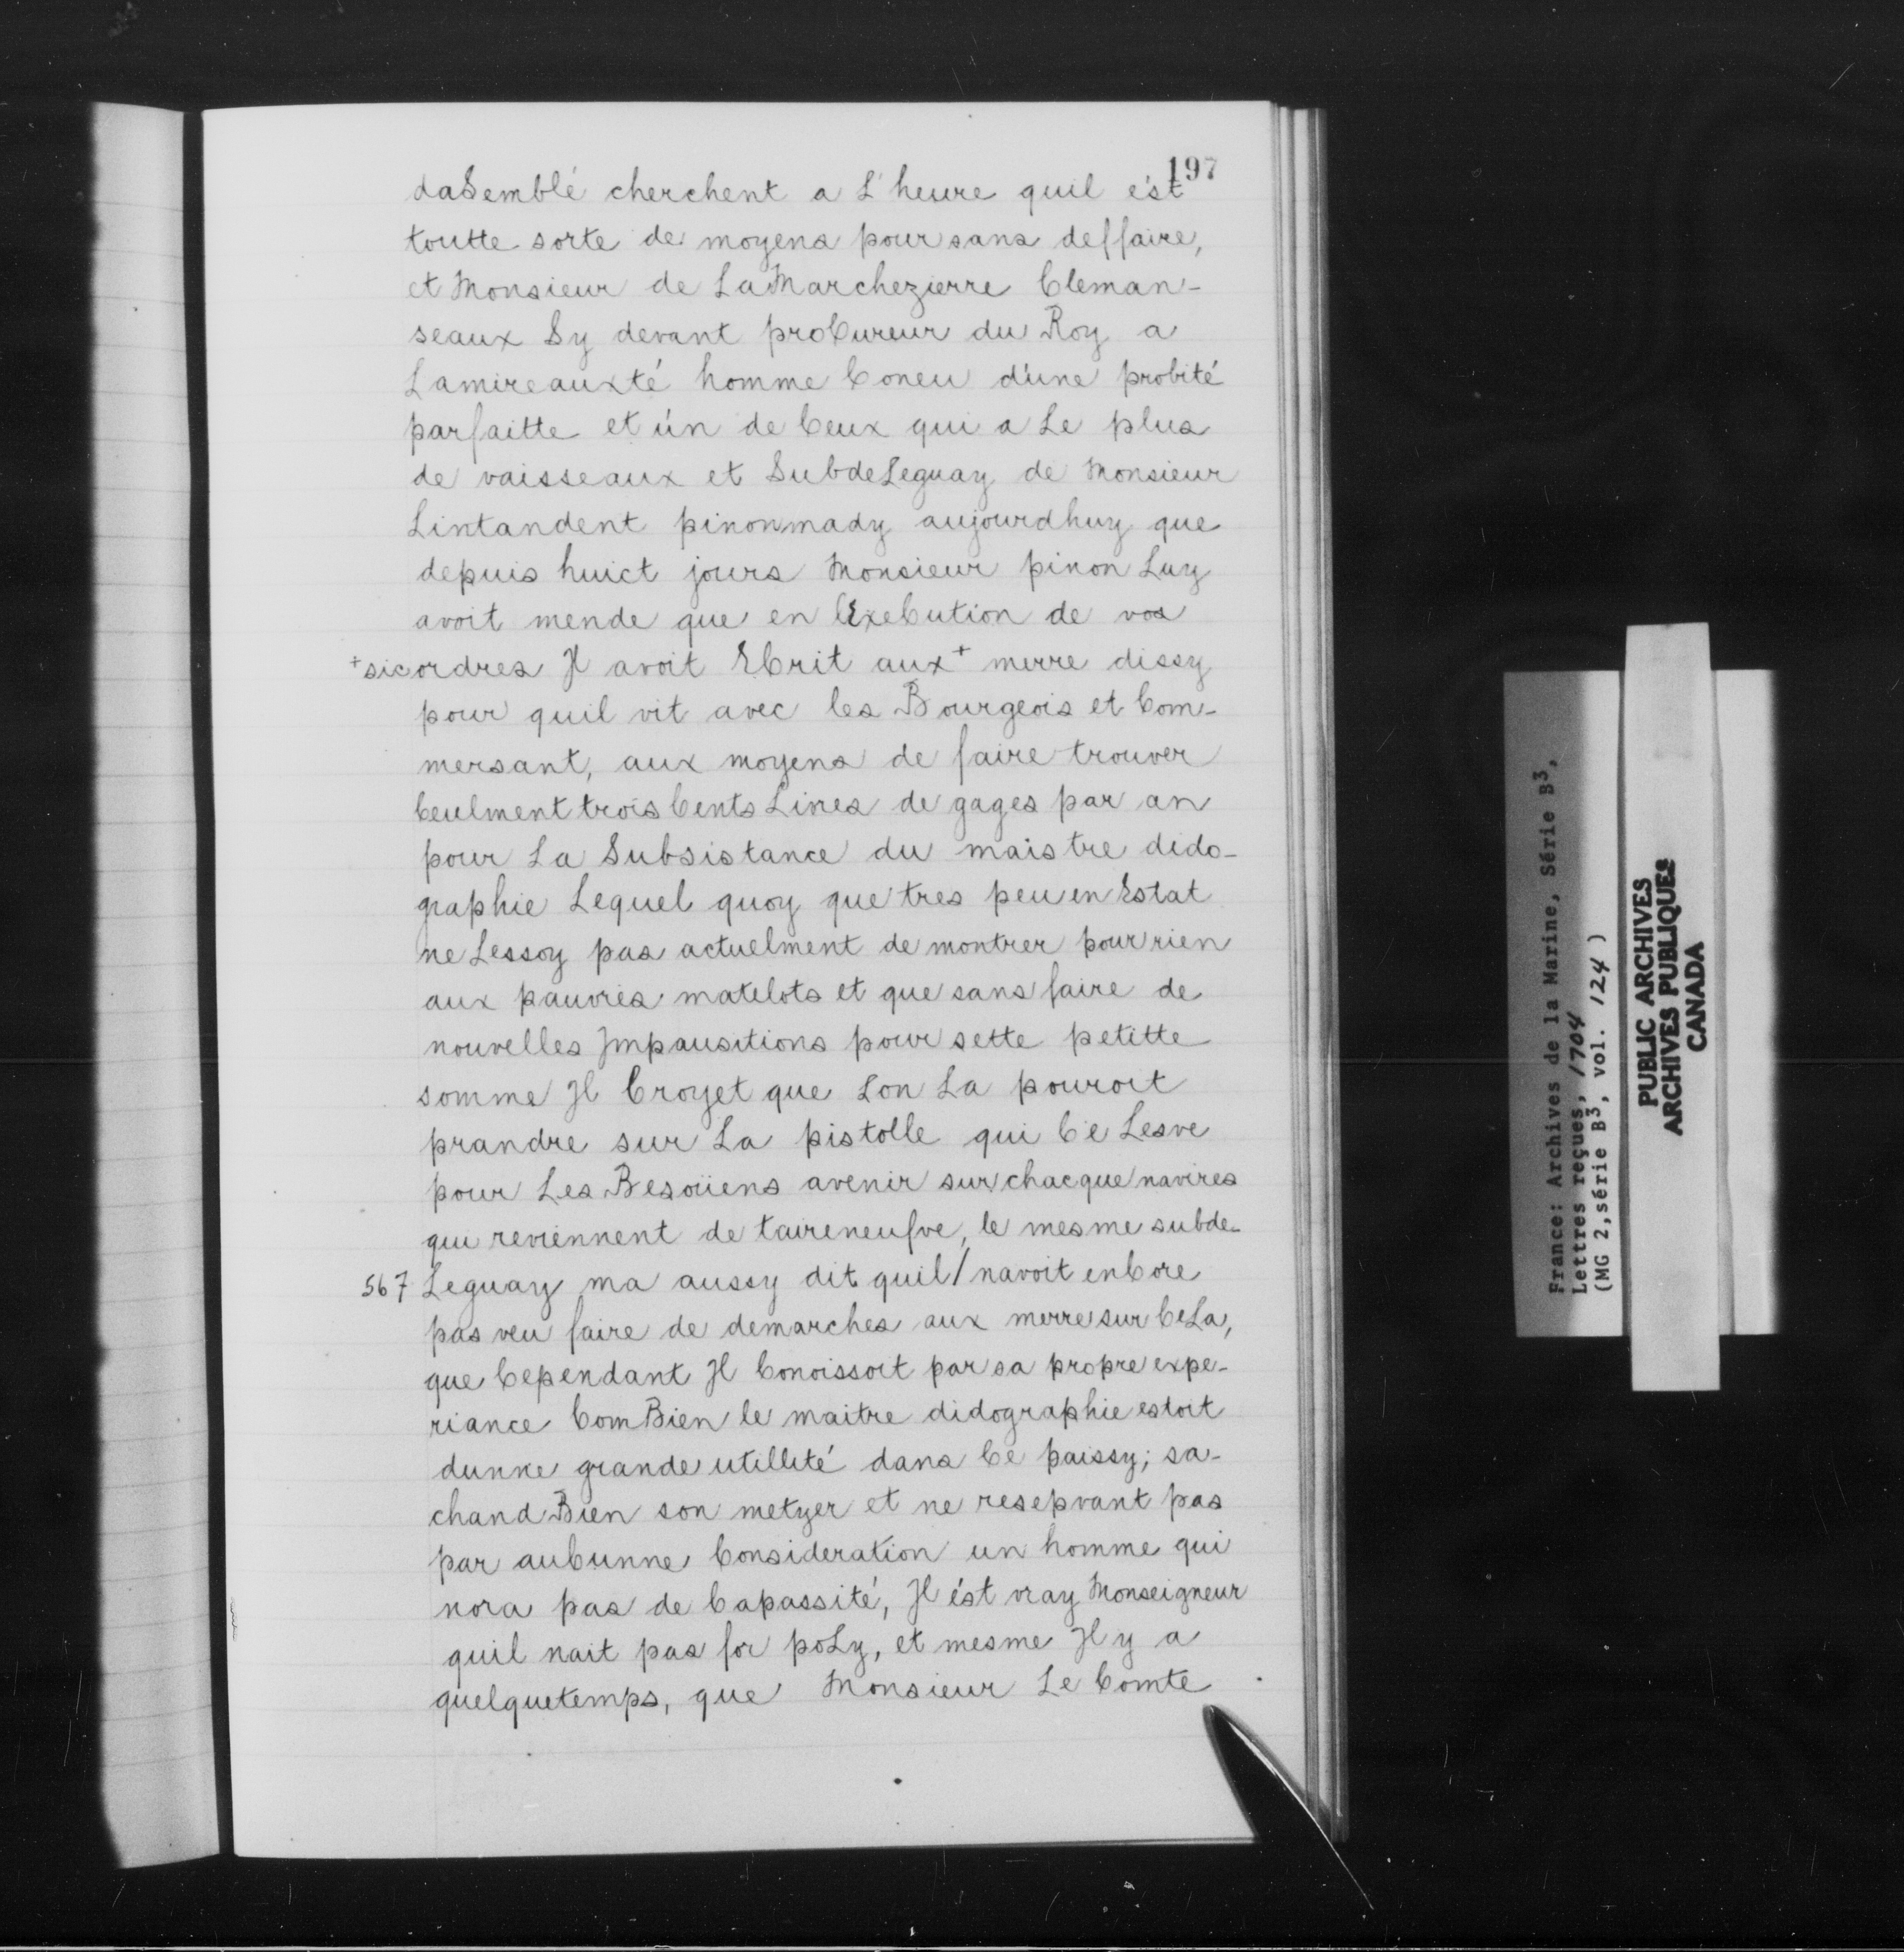 197
daSemblé cherchent a L'heure quil ést
toutte sorte de moyens pour sans deffaire,
et Monsieur de LaMarchezierre Cleman-
seaux Sy devant proCureur du Roy a
Lamireauxté homme Coneu d'une probité
parfaitte et ún de Ceux qui a Le plus
de vaisseaux et SubdeLeguay de Monsieur
Lintandent pinonmady aujourdhuy que
depuis huict jours Monsieur pinon Luy
avoit mende que en lExeCution de vos
+sic ordres Jl avoit ECrit aux+ merre dissy
pour quil vit avec les Bourgeois et Com-
mersant, aux moyens de faire trouver
Ceulment trois Cents Lires de gages par an
pour La Subsistance du maistre dido-
graphie Lequel quoy que tres peu en Estat
ne Lessoy pas actuelment de montrer pour rien
aux pauvres matelots et que sans faire de
nouvelles Jmpausitions pour sette petitte
somme Jl Croyet que Lon La pouroit
prandre sur La pistolle qui Ce Lesve
pour Les Besoiiens avenir sur chacque navires
qui reviennent de taireneufve, le mesme subde-
567 Leguay ma aussy dit quil/navoit enCore
pas veu faire de demarches aux merre sur CeLa,
que Cependant Jl Conoissoit par sa propre expe-
riance ComBien le maitre didographie estoit
dunne grande utillité dans Ce paissy; sa-
chand Bien son metyer et ne resepvant pas
par auCunne Consideration un homme qui
nora pas de Capassité, Jl ést vray Monseigneur
quil nait pas for poLy, et mesme Jl y a
quelquetemps, que Monsieur Le Comte
France: Archives de la Marine, Série B3,
Lettres reçues, 1704
(MG 2, série B3, vol. 124)
PUBLIC ARCHIVES
ARCHIVES PUBLIQUES
CANADA